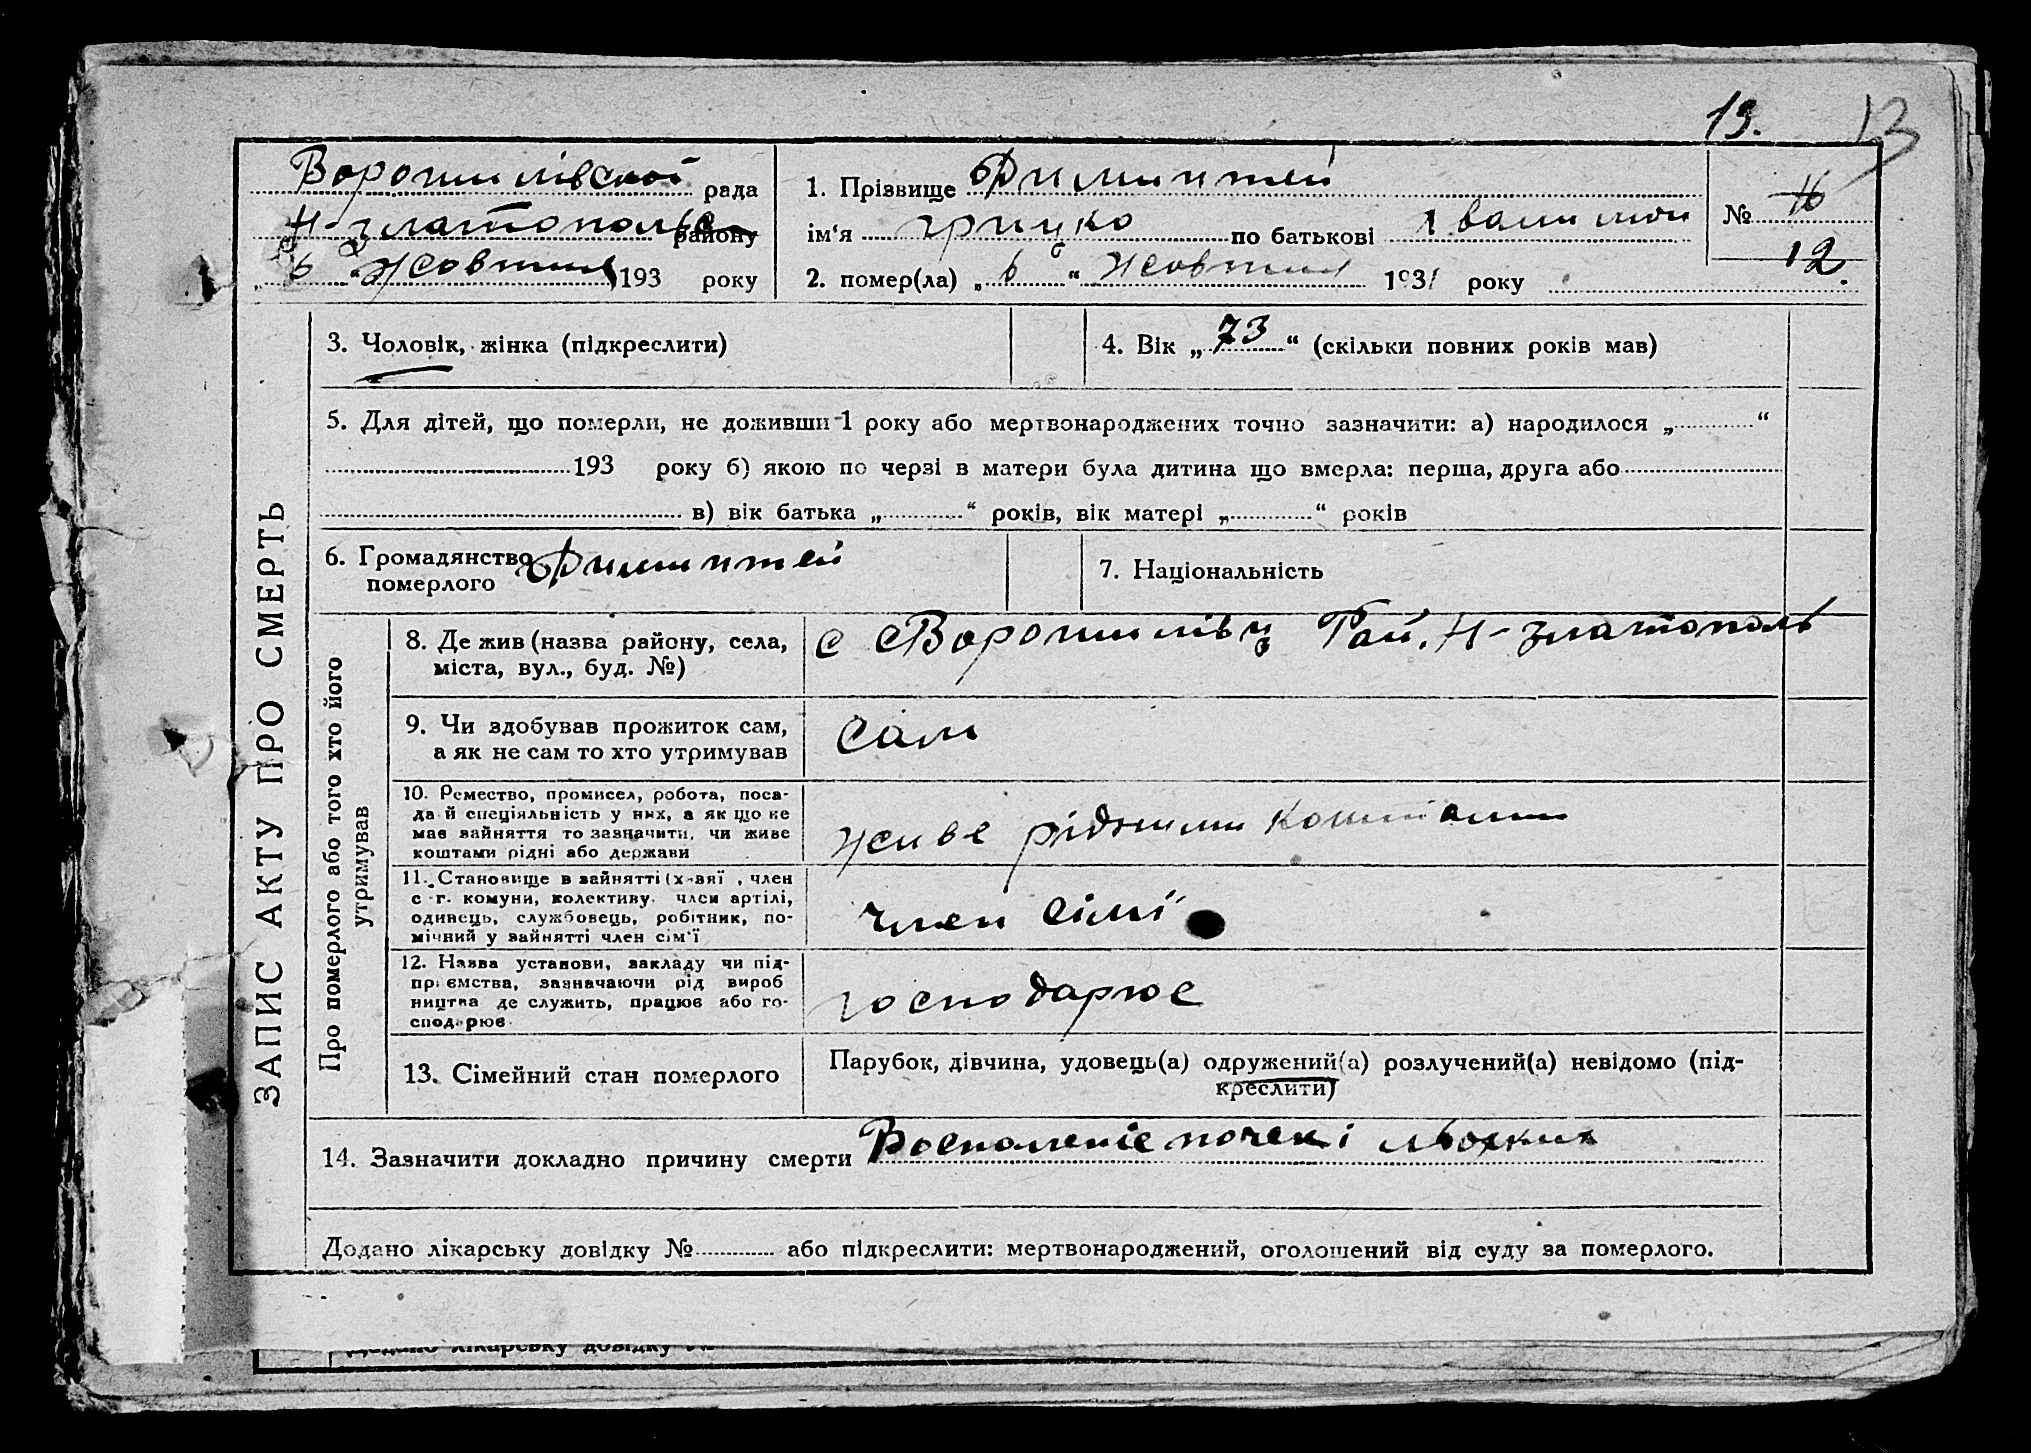 13. 13
Ворошилівской рада
Н-златополь району
6 Жовтня 193 року
1. Прізвище
ім‘я Грицко по батькові
2. помер(ла) „ 6 “ Жовтня 1931 року
№ 11
12.
3. Чоловік, жінка (підкреслити)
4. Вік „ 73 “ (скільки повних років мав)
5. Для дітей, що померли, не доживши 1 року або мертвонароджених точно зазначити: а) народилося „ “
193 року б) якою по черзі в матери була дитина що вмерла: перша, друга або
в) вік батька „ “ років, вік матері „ “ років
6. Громадянство
померлого
7. Національність
ЗАПИС АКТУ ПРО СМЕРТЬ
Про померлого або того хто його
утримував
8. Де жив (назва району, села,
міста, вул., буд. №)
с Ворошилівц Рай. Н-златополь
9. Чи здобував прожиток сам,
а як не сам то хто утримував
Сам
10. Ремество, промисел, робота, поса-
да й спеціяльність у них, а як що не
має зайняття то зазначити, чи живе
коштами рідні або держави
живе рідними коштами
11. Становище в зайнятті (х-вяї , член
с -г. комуни, колективу. член артілі,
одинець, службовець, робітник, по-
мічний у зайнятті член сім‘ї
член сімї
12. Назва установи, закладу чи під-
приємства, зазначаючи рід вироб
ництва де служить, працює або го-
сподарює
господарює
13. Сімейний стан померлого
Парубок, дівчина, удовець(а) одружений(а) розлучений(а) невідомо (під-
креслити)
14. Зазначити докладно причину смерти Воспаление почек і льохких
Додано лікарську довідку № або підкреслити: мертвонароджений, оголошений від суду за померлого.
Додано лікарську довідку №